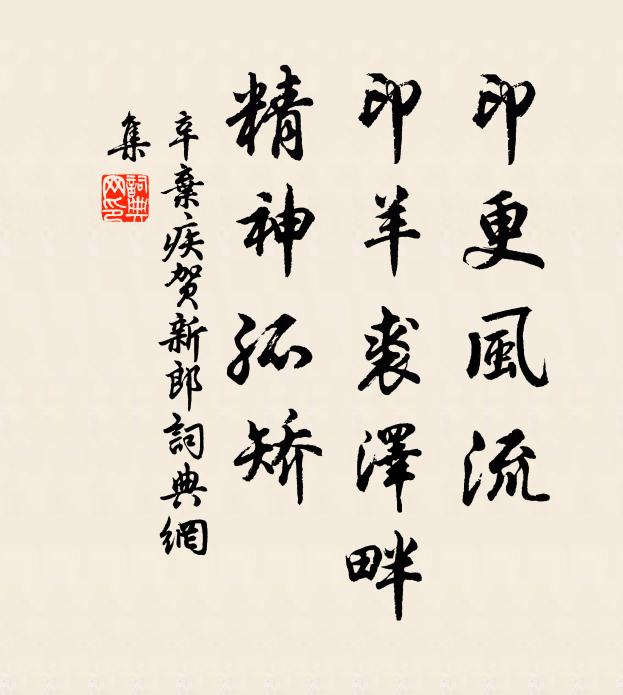 印更風流
印羊裘澤畔
精神孤矯
辛棄疾賀新郎詞典網
集
詞典
网印